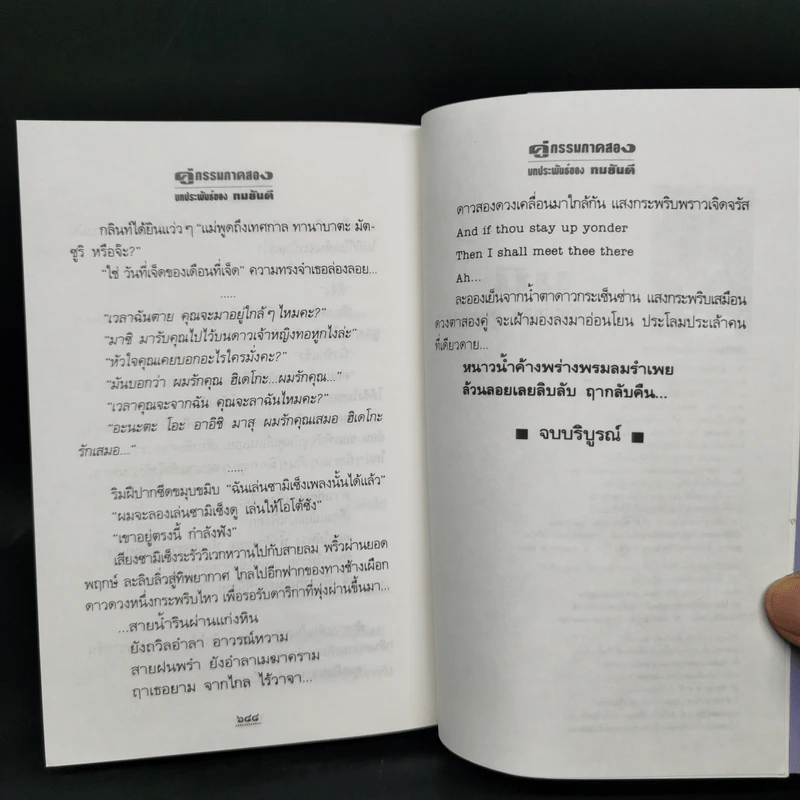 คู่กรรมภาคสอง
บทประพันธ์ของ ทมยันตี
กลินท์ได้ยินแว่วๆ “แม่พูดถึงเทศกาล ทานาบาตะ มัต-
ซูริ หรือจ๊ะ?”
“ใช่ วันที่เจ็ดของเดือนที่เจ็ด” ความทรงจำเธอล่องลอย...
.....
“เวลาฉันตาย คุณจะมาอยู่ใกล้ๆ ไหมคะ?”
“มาซิ มารับคุณไปไว้บนดาวเจ้าหญิงทอหูกไงล่ะ”
“หัวใจคุณเคยบอกอะไรใครมั่งคะ?”
“มันบอกว่า ผมรักคุณ ฮิเดโกะ...ผมรักคุณ...”
“เวลาคุณจะจากฉัน คุณจะลาฉันไหมคะ?”
“อะนะตะ โอะ อาอิชิ มาสุ ผมรักคุณเสมอ ฮิเดโกะ
รักเสมอ...”
.....
ริมฝีปากซีดขมุบขมิบ “ฉันเล่นซามิเซ็งเพลงนั้นได้แล้ว”
“ผมจะลองเล่นซามิเซ็งดู เล่นให้โอโต้ซัง”
“เขาอยู่ตรงนี้ กำลังฟัง”
เสียงซามิเซ็งระรัววิเวกหวานไปกับสายลม พริ้วผ่านยอด
พฤกษ์ ละลิบลิ่วสู่ทิพยากาศ ไกลไปอีกฟากของทางช้างเผือก
ดาวดวงหนึ่งกระพริบไหว เพื่อรอรับดาริกาที่พุ่งผ่านขึ้นมา...
...สายน้ำรินผ่านแก่งหิน
ยังถวิลอำลา อาวรณ์หวาม
สายฝนพรำ ยังอำลาเมฆาคราม
ฤๅเธอยาม จากไกล ไร้วาจา...
๖๔๘
คู่กรรมภาคสอง
บทประพันธ์ของ ทมยันตี
ดาวสองดวงเคลื่อนมาใกล้กัน แสงกระพริบพราวเจิดจรัส
And if thou stay up yonder
Then I shall meet thee there
Ah...
ละอองเย็นจากน้ำตาดาวกระเซ็นซ่าน แสงกระพริบเสมือน
ดวงตาสองคู่ จะเฝ้ามองลงมาอ่อนโยน ประโลมประเล้าคน
ที่เดียวดาย...
หนาวน้ำค้างพร่างพรมลมรำเพย
ล้วนลอยเลยลิบลับ ฤๅกลับคืน...
■ จบบริบูรณ์ ■